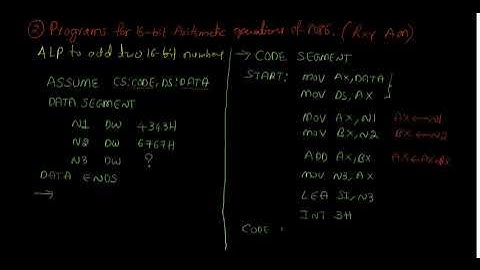 ② Programs for 16-bit Arithmetic operations of 8086. (
ALP to add two 16-bit numbers
ASSUME CS:CODE, DS:DATA
DATA SEGMENT
N1 DW 4343H
N2 DW 6767H
N3 DW ?
DATA ENDS
→
→ CODE SEGMENT
START: MOV AX,DATA
MOV DS,AX
MOV AX,N1 AX←N1
MOV BX,N2 BX←N2
ADD AX,BX AX←AX+BX
MOV N3,AX
LEA SI,N3
INT 3H
CODE